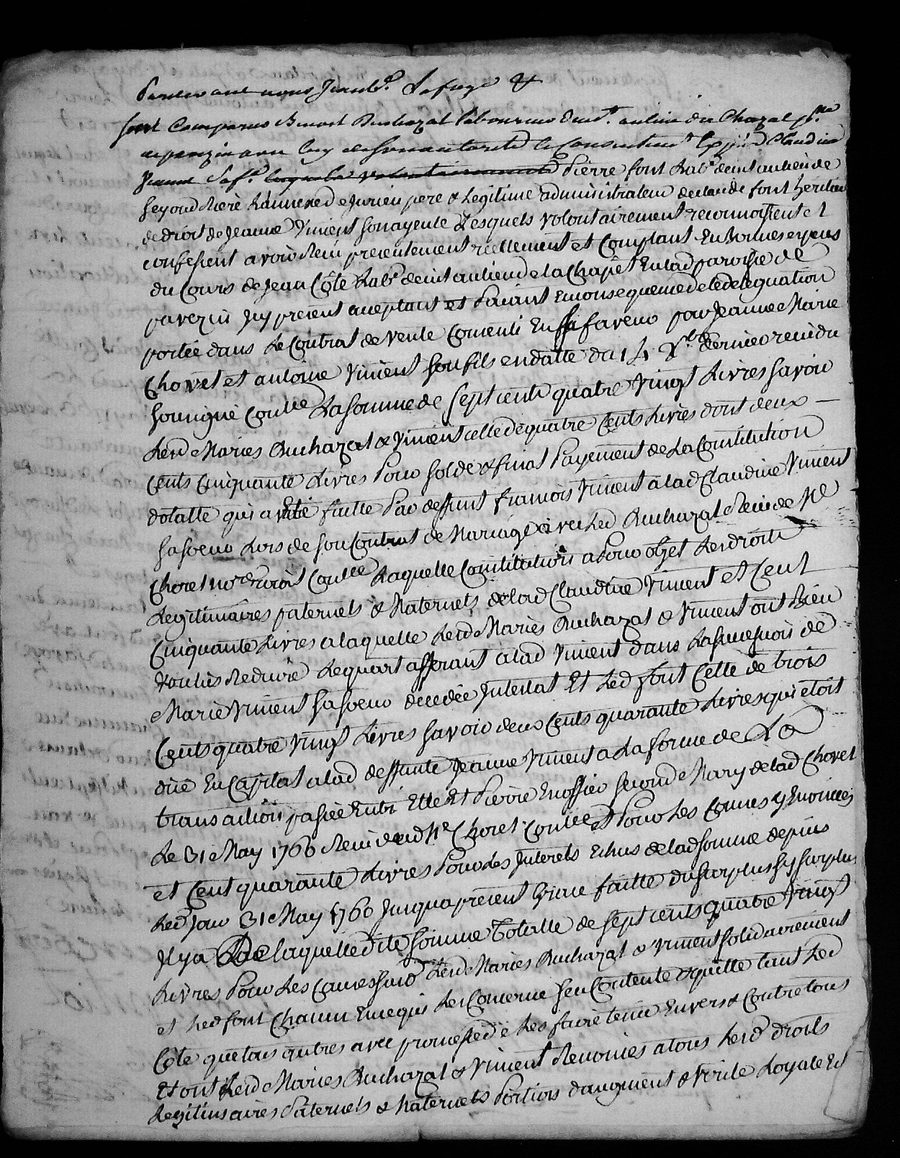 Pardevant nous Jean Lafuge &
sont Comparus Benoit Buchazal laboureur dud. au lieu du Chazal psse
de parezin avec luy et de son autorité le consentemt Claudine
Pierre font hab. de au lieu de
seyend here de Jurieu pere & Legitime administrateur de claude font heritier
de droit de Jeanne Vincent son ayeule Lesquels volontairement reconnoissent et
confessent avoir Receu presentement reellement et Comptant En bonnes especes
du Cours de Jean Côte hab. de au lieu de la Chapêt En lad paroisse de
parezin Icy present aceptant et païant En consequence de le delegation
portée dans Le Contrat de vente Consenti En sa faveur par Jeanne Marie
Chovet et antoine Vincent son fils en datte du 14 Xbre dernier receu du
soussigné Contlé La somme de sept cents quatre vingt Livres savoir
Lesd Mariés Buchazal & Vincent celle de quatre Cents Livres dont deux
Cents Cinquante Livres Pour solde & final Payement de La Constitution
dotalle qui a été faitte Par deffunt francois Vincent a lad Claudine Vincent
sa soeur Lors de son Contrat de Mariage avec Led Buchazal Receu de Me
Choret nore Contlé Laquelle Constitution a pour objet Les droits
Legitimaires paternels & Maternels de lad Claudine Vincent et Cent
Cinquante Livres a laquelle Lesd Mariés Buchazal & Vincent ont Bien
voulus Reduire Le quart afferant a lad Vincent dans La succession de
Marie Vincent sa soeur decedée Intestat Et Led font Celle de trois
Cents quatre vingt Livres savoir deux Cents quarante Livres qui etoit
due En Capital a lad deffunte Jeanne Vincent a La forme de La
transaction passée Entre Elle Et Pierre second Mary de lad Chovet
Le 31 May 1760 Receu dud Me Choret Contlée et Pour Les Causes y Enoncées
et Cent quarante Livres Pour Les Interets Echus de lad somme depuis
Led Jour 31 May 1760 Jusqua present Grace faitte du surplus sy surplus
Il y a De laquelle dite somme Totalle de sept cents quatre vingt
Livres Pour Les Causes susd Lesd Mariés Buchazal & Vincent solidairement
et Led font Chacun En ce qui Les Concerne sen Contente & quitte tant Led
Côte que tous autres avec promesse de Les faire tenir Envers & Contre tous
Et ont Lesd Mariés Buchazal & Vincent Renoncés a tous Lesd droits
Legitimaires Paternels & Maternels Portions daugment & virile Loyale et